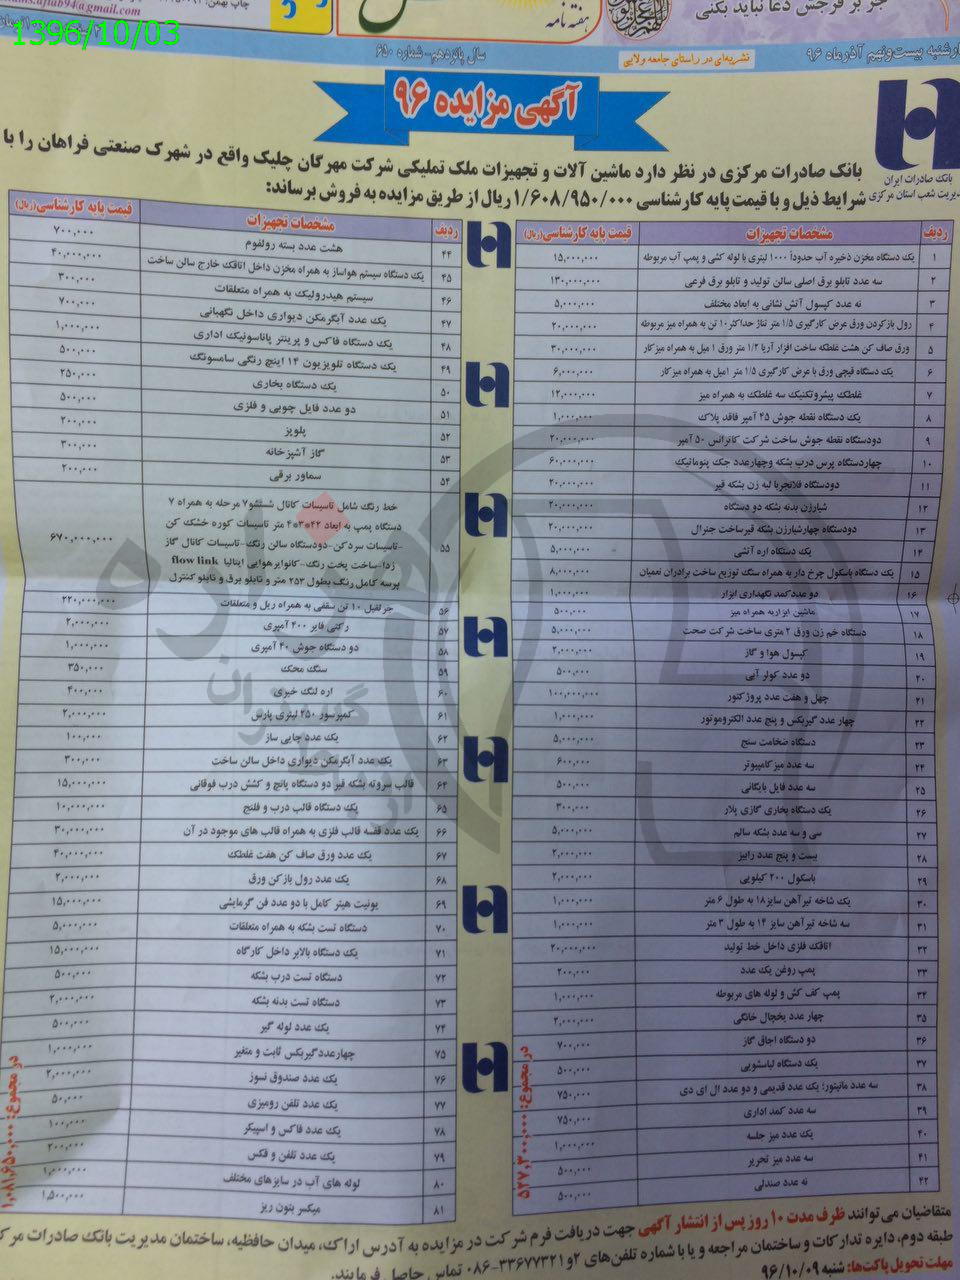 1396/10/03
هفته نامه
چاپ بهمن:
ams.aftab94@gmail.com
جز بر فرجش دعا نباید بکنی
سال پانزدهم- شماره ۶۵۰
نشریه‌ای در راستای جامعه ولایی
بیست‌ونهم آذرماه ۹۶
آگهی مزایده ۹۶
بانک صادرات ایران
مدیریت شعب استان مرکزی
بانک صادرات مرکزی در نظر دارد ماشین آلات و تجهیزات ملک تملیکی شرکت مهرگان چلیک واقع در شهرک صنعتی فراهان را با
شرایط ذیل و با قیمت پایه کارشناسی ۱/۶۰۸/۹۵۰/۰۰۰ ریال از طریق مزایده به فروش برساند:
ردیف مشخصات تجهیزات قیمت پایه کارشناسی (ریال)
۱ یک دستگاه مخزن ذخیره آب حدوداً ۱۰۰۰ لیتری با لوله کشی و پمپ آب مربوطه ۱۵,۰۰۰,۰۰۰
۲ سه عدد تابلو برق اصلی سالن تولید و تابلو برق فرعی ۱۳۰,۰۰۰,۰۰۰
۳ نه عدد کپسول آتش نشانی به ابعاد مختلف ۵,۰۰۰,۰۰۰
۴ رول بازکردن ورق عرض کارگیری ۱/۵ متر تناژ حداکثر ۱۰ تن به همراه میز مربوطه ۲۰,۰۰۰,۰۰۰
۵ ورق صاف کن هشت غلطکه ساخت افزار آریا ۱/۲ متر ورق ۱ میل به همراه میزکار ۳۰,۰۰۰,۰۰۰
۶ یک دستگاه قیچی ورق با عرض کارگیری ۱/۵ متر ۱میل به همراه میزکار ۶,۰۰۰,۰۰۰
۷ غلطک پیشروتکنیک سه غلطک به همراه میز ۱۲,۰۰۰,۰۰۰
۸ یک دستگاه نقطه جوش ۴۵ آمپر فاقد پلاک ۱,۰۰۰,۰۰۰
۹ دودستگاه نقطه جوش ساخت شرکت کاترانس ۵۰ آمپر ۲۰,۰۰۰,۰۰۰
۱۰ چهاردستگاه پرس درب بشکه وچهارعدد جک پنوماتیک ۶۰,۰۰۰,۰۰۰
۱۱ دودستگاه فلانجریا لبه زن بشکه قیر ۲۰,۰۰۰,۰۰۰
۱۲ شیارزن بدنه بشکه دو دستگاه ۲۰,۰۰۰,۰۰۰
۱۳ دودستگاه چهارشیارزن بشکه قیرساخت جنرال ۲۰,۰۰۰,۰۰۰
۱۴ یک دستگاه اره آتشی ۵,۰۰۰,۰۰۰
۱۵ یک دستگاه باسکول چرخ دار به همراه سنگ توزیع ساخت برادران نعمیان ۸,۰۰۰,۰۰۰
۱۶ دو عددکمد نگهداری ابزار ۱,۰۰۰,۰۰۰
۱۷ ماشین ابزاربه همراه میز ۵۰۰,۰۰۰
۱۸ دستگاه خم زن ورق ۲ متری ساخت شرکت صحت ۵,۰۰۰,۰۰۰
۱۹ کپسول هوا و گاز ۲,۰۰۰,۰۰۰
۲۰ دو عدد کولر آبی ۵۰۰,۰۰۰
۲۱ چهل و هفت عدد پروژکتور ۱۰۰,۰۰۰,۰۰۰
۲۲ چهار عدد گیربکس و پنج عدد الکتروموتور ۱,۰۰۰,۰۰۰
۲۳ دستگاه ضخامت سنج ۵,۰۰۰,۰۰۰
۲۴ سه عدد میزکامپیوتر ۶۰۰,۰۰۰
۲۵ سه عدد فایل بایگانی ۵۰۰,۰۰۰
۲۶ یک دستگاه بخاری گازی پلار ۳۰۰,۰۰۰
۲۷ سی و سه عدد بشکه سالم ۵,۰۰۰,۰۰۰
۲۸ بیست و پنج عدد رابیز ۲,۰۰۰,۰۰۰
۲۹ باسکول ۲۰۰ کیلویی ۲,۰۰۰,۰۰۰
۳۰ یک شاخه تیرآهن سایز۱۸ به طول ۶ متر ۱,۰۰۰,۰۰۰
۳۱ سه شاخه تیرآهن سایز ۱۴ به طول ۳ متر ۱,۰۰۰,۰۰۰
۳۲ اتاقک فلزی داخل خط تولید ۲۰,۰۰۰,۰۰۰
۳۳ پمپ روغن یک عدد ۲۰۰,۰۰۰
۳۴ پمپ کف کش و لوله های مربوطه ۱,۰۰۰,۰۰۰
۳۵ چهار عدد یخچال خانگی ۲,۰۰۰,۰۰۰
۳۶ دو دستگاه اجاق گاز ۷۰۰,۰۰۰
۳۷ یک دستگاه لباسشویی ۵۰۰,۰۰۰
۳۸ سه عدد مانیتور؛ یک عدد قدیمی و دو عدد ال ای دی ۷۵۰,۰۰۰
۳۹ سه عدد کمد اداری ۷۵۰,۰۰۰
۴۰ یک عدد میز جلسه ۱,۰۰۰,۰۰۰
۴۱ سه عدد میز تحریر ۵۰۰,۰۰۰
۴۲ نه عدد صندلی ۵۰۰,۰۰۰
در مجموع: ۵۲۷,۳۰۰,۰۰۰
ردیف مشخصات تجهیزات قیمت پایه کارشناسی (ریال)
۴۴ هشت عدد بسته رولفوم ۷۰۰,۰۰۰
۴۵ یک دستگاه سیستم هواساز به همراه مخزن داخل اتاقک خارج سالن ساخت ۴۰,۰۰۰,۰۰۰
۴۶ سیستم هیدرولیک به همراه متعلقات ۳۰۰,۰۰۰
۴۷ یک عدد آبگرمکن دیواری داخل نگهبانی ۷۰۰,۰۰۰
۴۸ یک دستگاه فاکس و پرینتر پاناسونیک اداری ۱,۰۰۰,۰۰۰
۴۹ یک دستگاه تلویزیون ۱۴ اینچ رنگی سامسونگ ۵۰۰,۰۰۰
۵۰ یک دستگاه بخاری ۲۵۰,۰۰۰
۵۱ دو عدد فایل چوبی و فلزی ۵۰۰,۰۰۰
۵۲ پلوپز ۲۰۰,۰۰۰
۵۳ گاز آشپزخانه ۳۰۰,۰۰۰
۵۴ سماور برقی ۲۰۰,۰۰۰
خط رنگ شامل تاسیسات کانال شستشو۷ مرحله به همراه ۷
دستگاه پمپ به ابعاد ۴۲*۳*۴ متر تاسیسات کوره خشک کن
۵۵ -تاسیسات سردکن-دودستگاه سالن رنگ-تاسیسات کانال گاز ۶۷۰,۰۰۰,۰۰۰
زدا-ساخت پخت رنگ-کانوایرهوایی ایتالیا flow link
پرسه کامل رنگ بطول ۲۵۳ متر و تابلو برق و تابلو کنترل
۵۶ جرثقیل ۱۰ تن سقفی به همراه ریل و متعلقات ۲۲۰,۰۰۰,۰۰۰
۵۷ رکتی فایر ۴۰۰ آمپری ۲,۰۰۰,۰۰۰
۵۸ دو دستگاه جوش ۴۰ آمپری ۱,۰۰۰,۰۰۰
۵۹ سنگ محک ۳۵۰,۰۰۰
۶۰ اره لنگ خبری ۴۰۰,۰۰۰
۶۱ کمپرسور ۲۵۰ لیتری پارس ۲,۰۰۰,۰۰۰
۶۲ یک عدد چایی ساز ۱۰۰,۰۰۰
۶۳ یک عدد آبگرمکن دیواری داخل سالن ساخت ۳۰۰,۰۰۰
۶۴ قالب سروته بشکه قیر دو دستگاه پانچ و کشش درب فوقانی ۱۵,۰۰۰,۰۰۰
۶۵ یک دستگاه قالب درب و فلنج ۱۰,۰۰۰,۰۰۰
۶۶ یک عدد قفسه قالب فلزی به همراه قالب های موجود در آن ۳۰,۰۰۰,۰۰۰
۶۷ یک عدد ورق صاف کن هفت غلطک ۴۰,۰۰۰,۰۰۰
۶۸ یک عدد رول بازکن ورق ۲,۰۰۰,۰۰۰
۶۹ یونیت هیتر کامل با دو عدد فن گرمایشی ۱۵,۰۰۰,۰۰۰
۷۰ دستگاه تست بشکه به همراه متعلقات ۵,۰۰۰,۰۰۰
۷۱ یک دستگاه بالابر داخل کارگاه ۱۵,۰۰۰,۰۰۰
۷۲ دستگاه تست درب بشکه ۵۰۰,۰۰۰
۷۳ دستگاه تست بدنه بشکه ۲,۰۰۰,۰۰۰
۷۴ یک عدد لوله گیر ۵۰۰,۰۰۰
۷۵ چهارعددگیربکس ثابت و متغیر ۱,۰۰۰,۰۰۰
۷۶ یک عدد صندوق نسوز ۲,۰۰۰,۰۰۰
۷۷ یک عدد تلفن رومیزی ۵۰,۰۰۰
۷۸ یک عدد فاکس و اسپیکر ۱۰۰,۰۰۰
۷۹ یک عدد تلفن و فکس ۲۰۰,۰۰۰
۸۰ لوله های آب در سایزهای مختلف ۱,۰۰۰,۰۰۰
۸۱ میکسر بتون ریز ۱,۵۰۰,۰۰۰
در مجموع: ۱,۰۸۱,۶۵۰,۰۰۰
متقاضیان می‌توانند ظرف مدت ۱۰ روز پس از انتشار آگهی جهت دریافت فرم شرکت در مزایده به آدرس اراک، میدان حافظیه، ساختمان مدیریت بانک صادرات
طبقه دوم، دایره تدارکات و ساختمان مراجعه و یا با شماره تلفن‌های ۲و۳۳۶۷۷۳۲۱-۰۸۶ تماس حاصل فرمایند.
مهلت تحویل پاکت‌ها: شنبه ۹۶/۱۰/۰۹